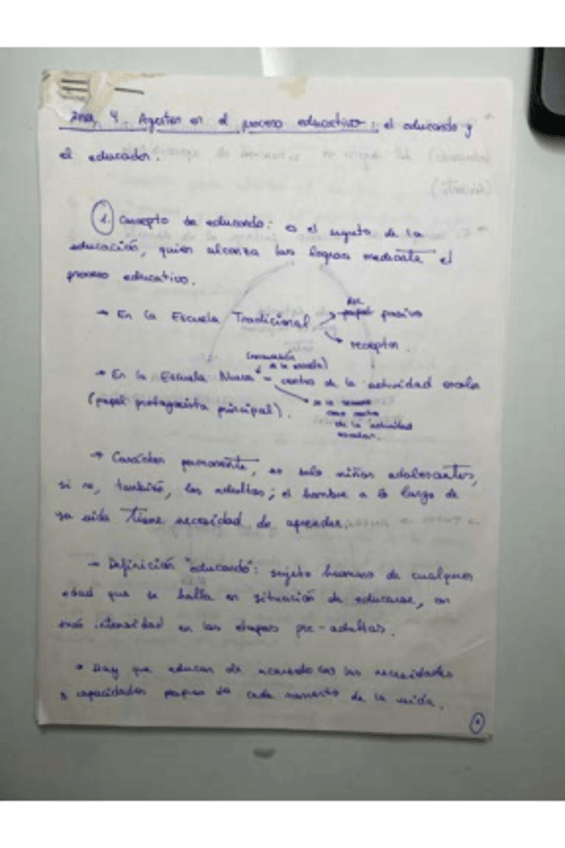 Tema 4. Agentes en el proceso educativo: el educando y
el educador.
1. Concepto de educando: es el sujeto de la
educación, quien alcanza los logros mediante el
proceso educativo.
→ En la Escuela Tradicional → papel pasivo
→ receptor.
→ En la Escuela Nueva = centro de la actividad escolar
(papel protagonista principal).
como centro
de la actividad
escolar.
→ Carácter permanente, no solo niños adolescentes,
si no, también, los adultos; el hombre a lo largo de
su vida tiene necesidad de aprender.
→ Definición "educando": sujeto humano de cualquier
edad que se halla en situación de educarse, con
más intensidad en las etapas pre-adultas.
• Hay que educar de acuerdo con las necesidades
y capacidades propias de cada momento de la vida.